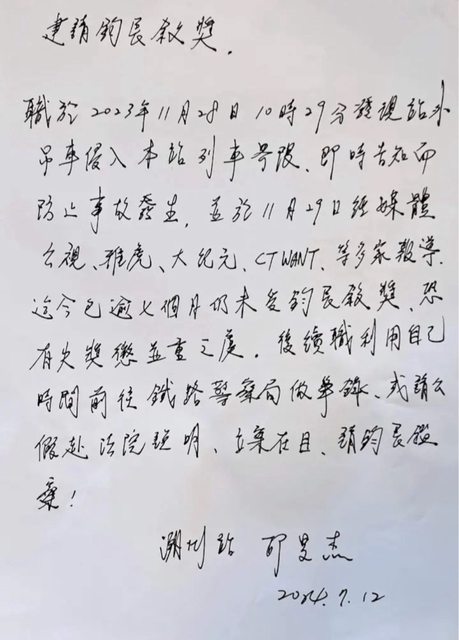 建請鈞長敘獎.
職於2023年11月28日10時29分發現站外
吊車侵入本站列車界限、即時告知而
防止事故發生,並於11月29日經媒體
公視、雅虎、大紀元、CTWANT、等多家報導.
迄今已逾七個月仍未受鈞長敘獎,恐
有失獎懲並重之虞,後續職利用自己
時間前往鐵路警察局做筆錄、或請公
假赴法院說明、立案在目、請鈞長鑒
察!
潮州站 邱
2024.7.12